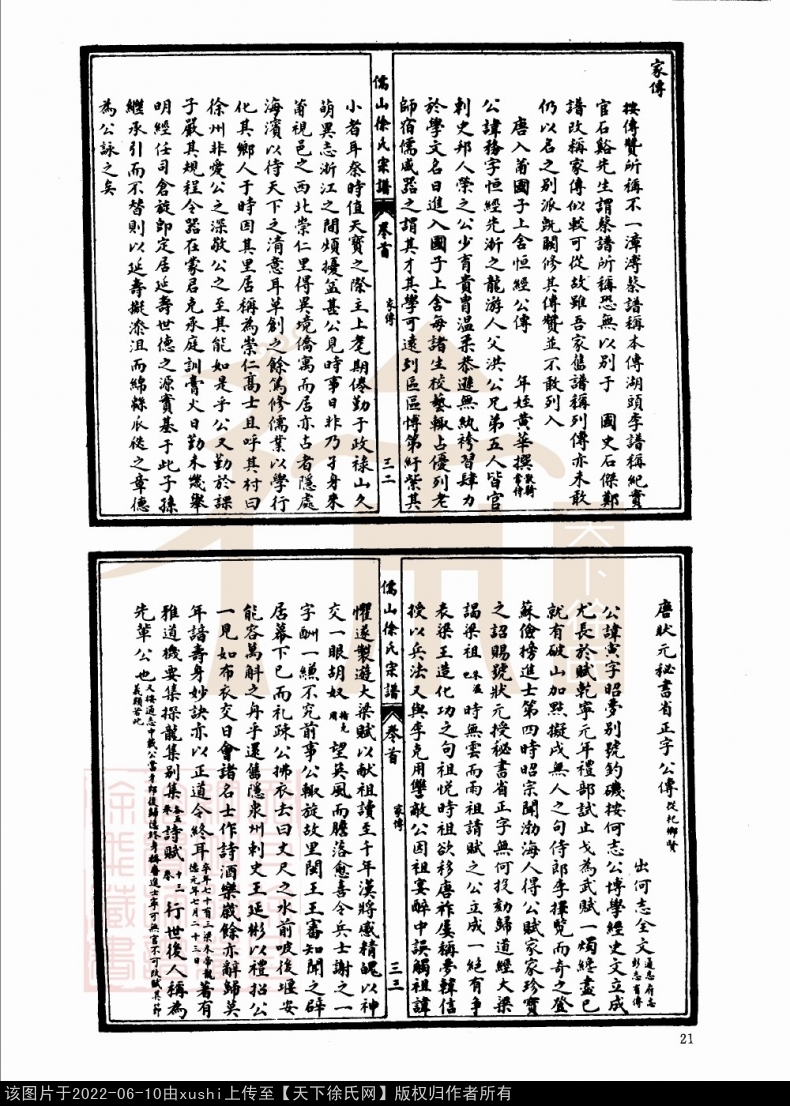 家傳
按傳贊所稱不一漳溥蔡譜稱本傳湖頭李譜稱紀實
官石谿先生謂蔡譜所稱恐無以別于 國史石傑鄭
譜改稱家傳似較可從故雖吾家舊譜稱列傳亦未敢
仍以名之別派既闕修其傳贊並不敢列入
唐入莆國子上舍恒經公傳 年姪黃華撰散騎常侍
公諱務字恒經先浙之龍游人父洪公兄弟五人皆官
刺史邦人榮之公少育貴胄溫柔恭遜無紈袴習肆力
於學文名日進入國子上舍每諸生校藝輒占優列老
師宿儒咸器之謂其才其學可遠到區區博第紆紫其
儒山徐氏宗譜 卷首 家傳 三二
小者耳奈時值天寶之際主上耄期倦勤于政祿山久
萌異志浙江之間煩擾益甚公見時事日非乃孑身來
莆視邑之西北崇仁里得異境僑寓而居亦古者隱處
海濱以待天下之清意耳草創之餘篤修儒業以學行
化其鄉人于時因其里居稱為崇仁高士且呼其村曰
徐州非愛公之深敬公之至其能如是乎公又勤於課
子嚴其規程令器在蒙君克承庭訓膏火日勤未幾舉
明經任司倉旋即定居延壽世德之源實基于此子孫
繼承引而不替則以延壽擬漆沮而綿緜瓜瓞之章德
為公詠之矣
唐狀元秘書省正字公傳從祀鄉賢
出何志全文通志府志彭志有傳
公諱寅字昭夢別號釣磯按何志公博學經史文立成
尤長於賦乾寧元年禮部試止戈為武賦一燭纔盡已
就有破山加點擬戍無人之句侍郎李擇覽而奇之登
蘇儉榜進士第四時昭宗聞渤海人得公賦家家珍寶
之詔賜號狀元授秘書省正字無何投劾歸道經大梁
謁梁祖朱溫時無雲而雨祖請賦之公立成一絕有爭
表梁王造化功之句祖悅時祖欲移唐祚屢稱夢韓信
授以兵法又與李克用釁敵公因祖宴醉中誤觸祖諱
儒山徐氏宗譜 卷首 家傳 三三
懼遂製遊大梁賦以獻祖讀至千年漢將感精魄以神
交一眼胡奴指克用望英風而膽落愈喜令兵士誦之一
字酬一縑不究前事公輒旋故里閩王王審知聞之辟
居幕下已而禮疎公拂衣去曰丈尺之水前陂後堰安
能容萬斛之舟乎還舊隱泉州刺史王延彬以禮招公
一見如布衣交日會諸名士作詩酒樂歲餘亦辭歸莫
年諳壽身妙訣亦以正道令終耳卒年七十有三梁末帝龍德元年七月二十三日著有
雅道機要集探龍集別集各五卷詩賦十三卷行世後人稱為
先輩公也
21
该图片于2022-06-10由xushi上传至【天下徐氏网】版权归作者所有